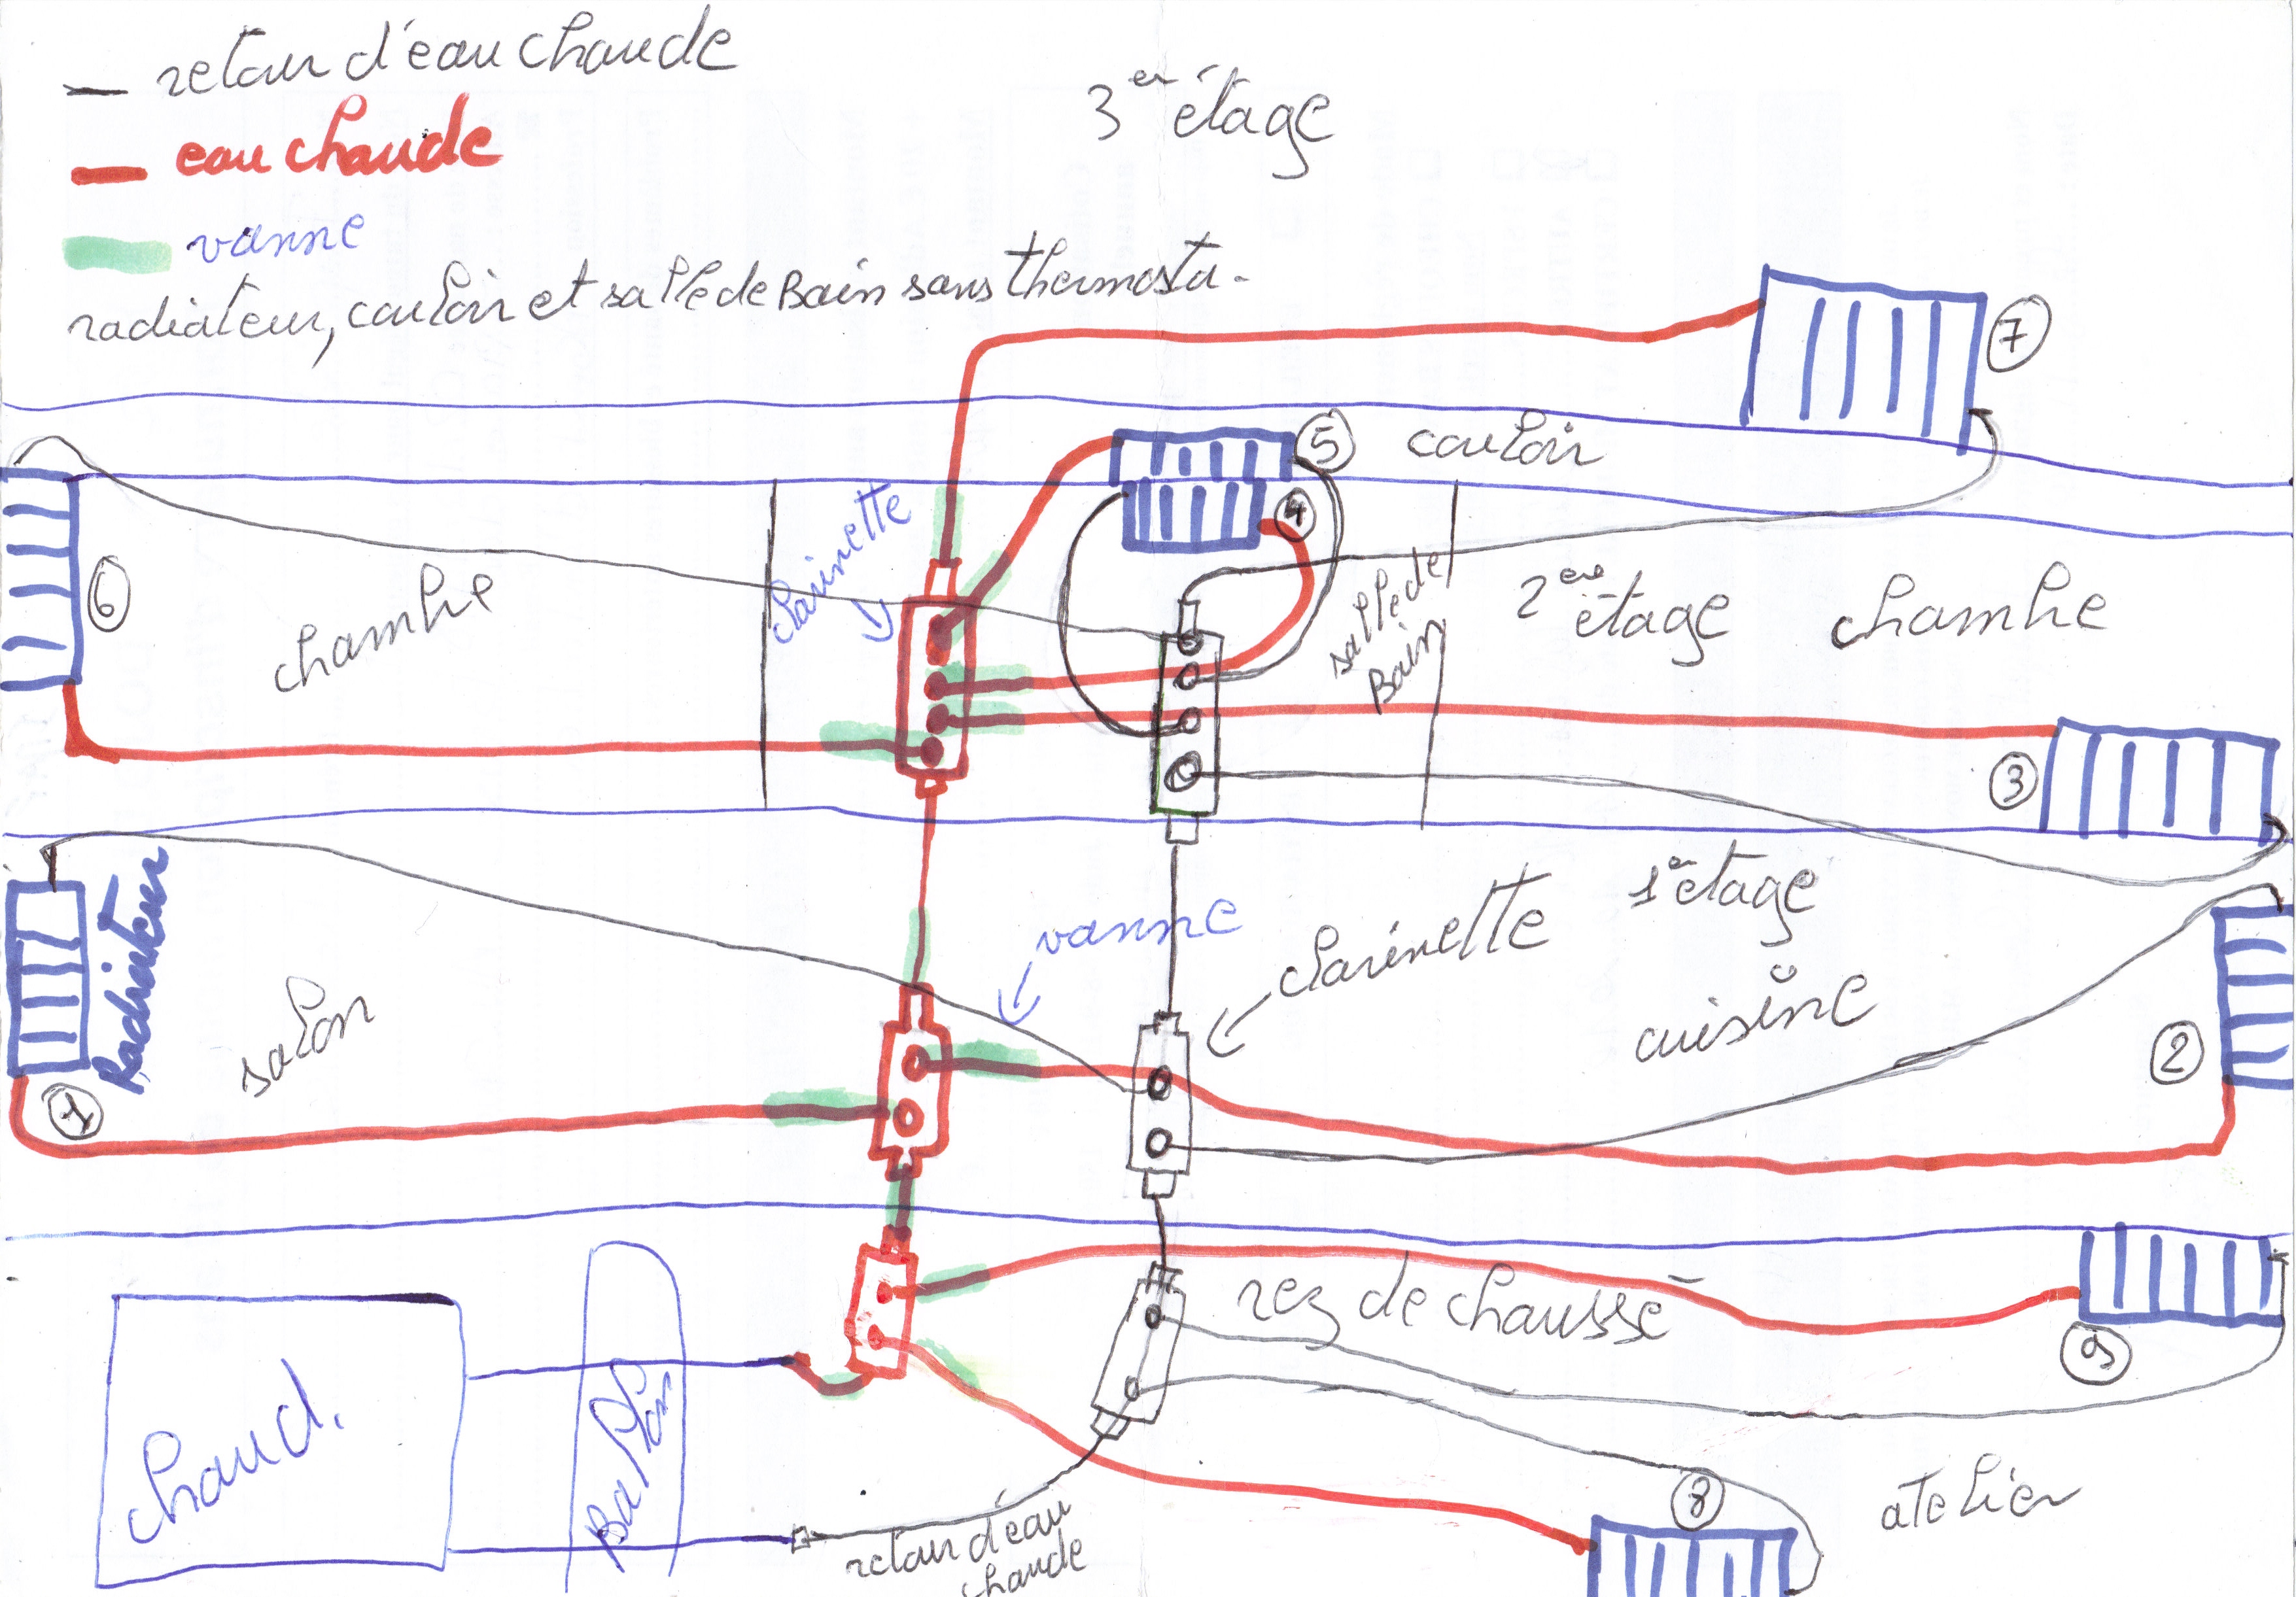 retour d'eau chaude
eau chaude
vanne
radiateur, couloir et salle de Bain sans thermosta-
3er étage
7
5
couloir
4
clarinette
6
chambre
salle de
Bain
2ere étage
chambre
3
Radiateur
1
salon
vanne
clarinette
1er étage
cuisine
2
rez de chaussé
9
chaud.
Ballon
retour d'eau
chaude
8
atelier